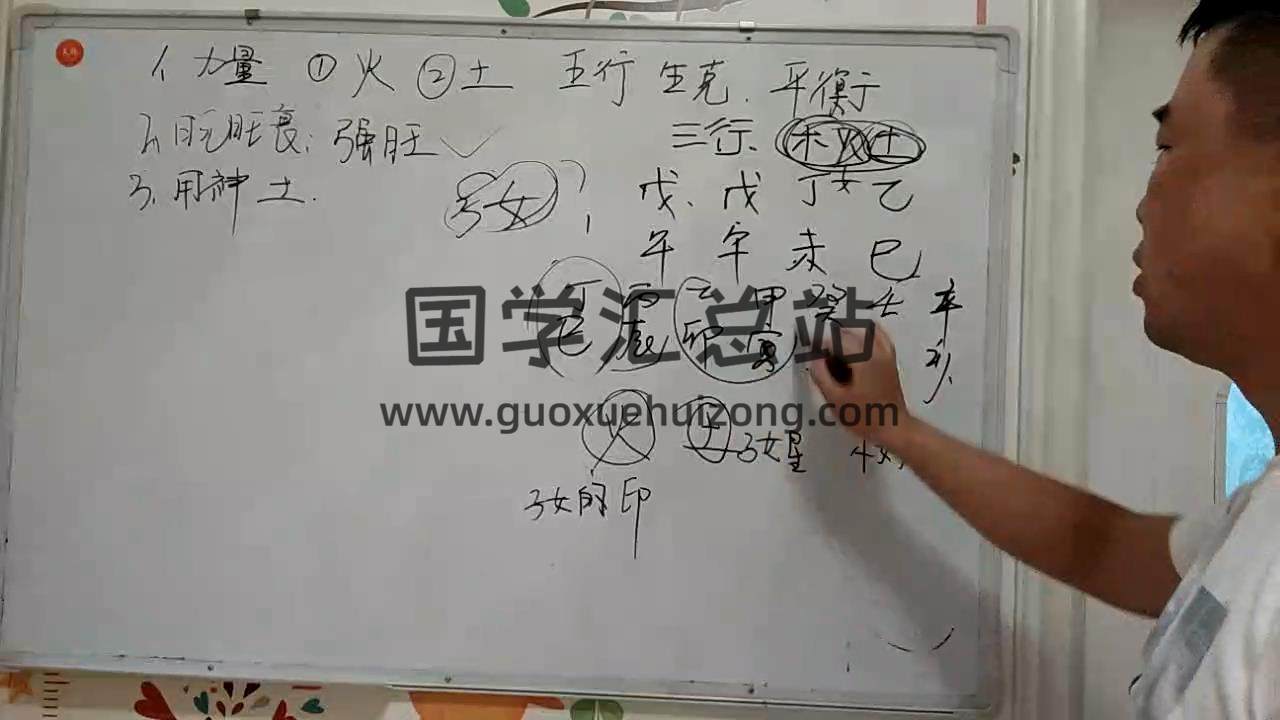 1. 力量 ①火 ②土 五行 生克. 平衡
2. 旺衰: 强旺✓ 三行. 木火土
3. 用神 土.
子女? 戊. 戊 丁女 乙
午 午 未 巳
丁 丙 乙 甲 癸 壬 辛
巳 辰 卯 寅
国学汇总站
www.guoxuehuizong.com
火 土 子女星
子女的印